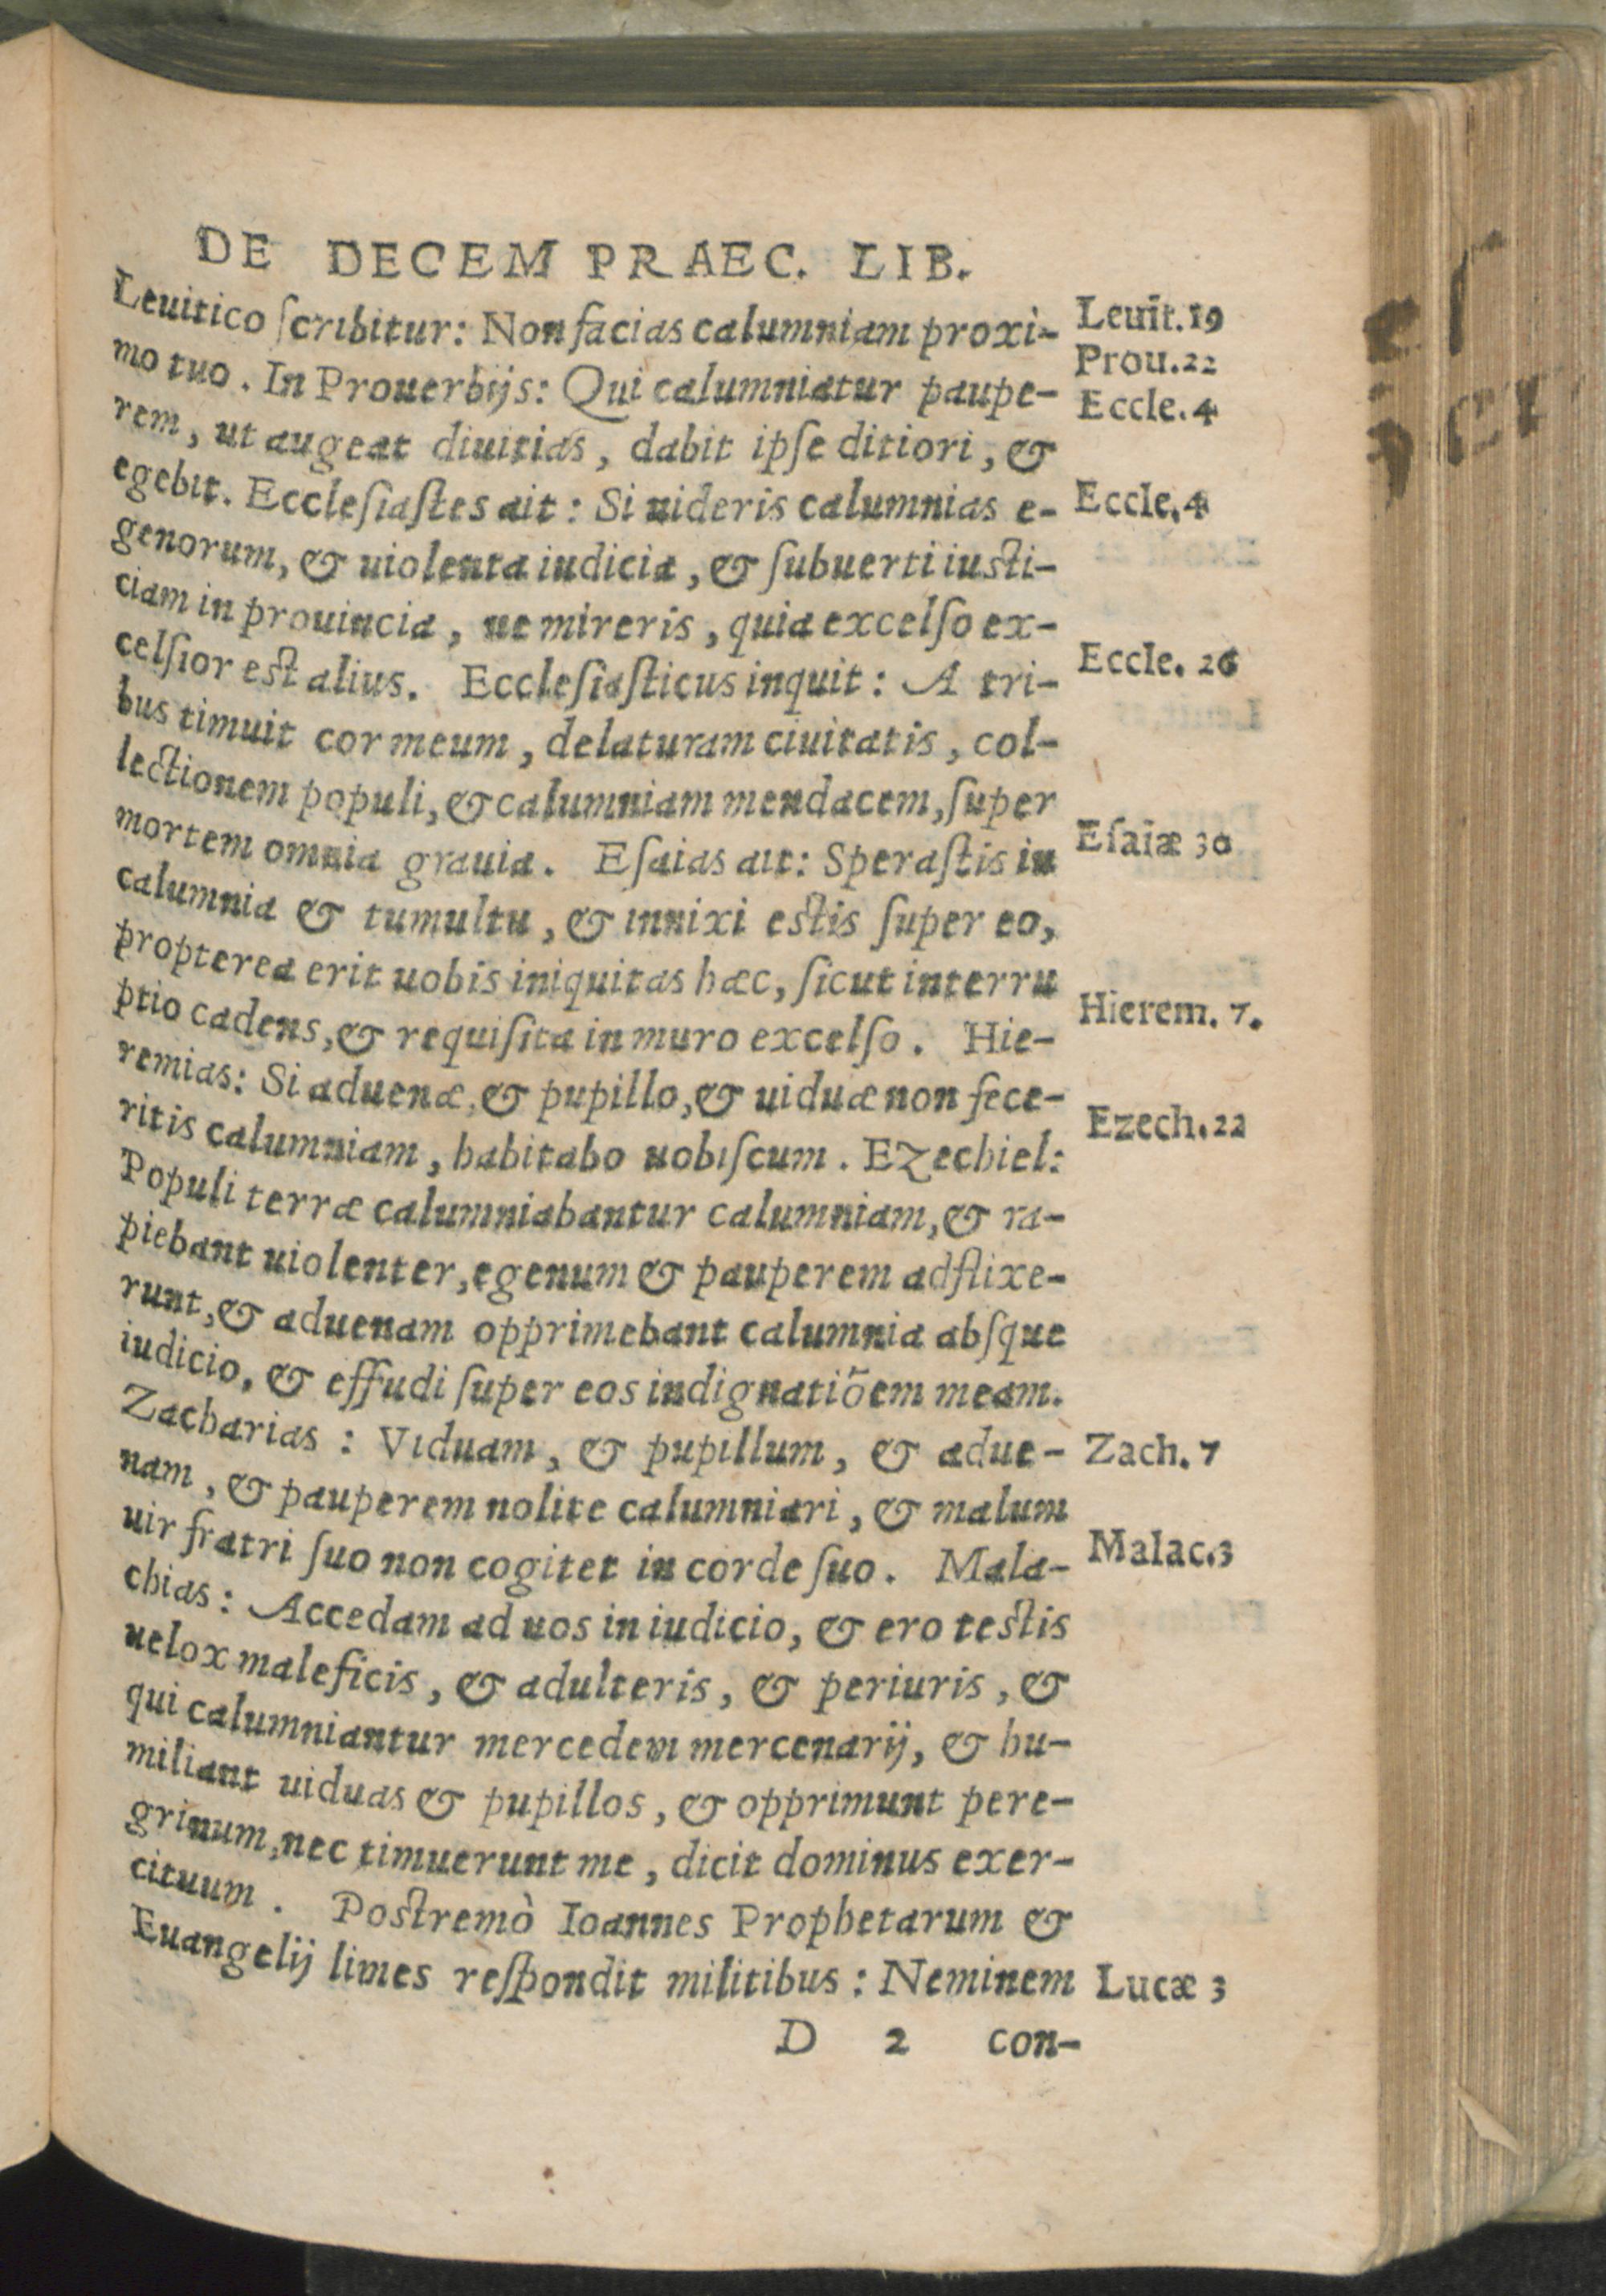 DE DECEM PRAEC. LIB.
Leuitico ſcribitur: Non facias calumniam proxi-
mo tuo. In Prouerbijs: Qui calumniatur paupe-
rem, ut augeat diuitias, dabit ipſe ditiori, &
egebit. Eccleſiaſtes ait: Si uideris calumnias e-
genorum, & uiolenta iudicia, & ſubuerti iuſti-
ciam in prouincia, ne mireris, quia excelſo ex-
celſior eſt alius. Eccleſiaſticus inquit: A tri-
bus timuit cor meum, delaturam ciuitatis, col-
lectionem populi, & calumniam mendacem, ſuper
mortem omnia grauia. Eſaias ait: Speraſtis in
calumnia & tumultu, & innixi eſtis ſuper eo,
propterea erit uobis iniquitas hæc, ſicut interru
ptio cadens, & requiſita in muro excelſo. Hie-
remias: Si aduenæ, & pupillo, & uiduæ non fece-
ritis calumniam, habitabo uobiſcum. Ezechiel:
Populi terræ calumniabantur calumniam, & ra-
piebant uiolenter, egenum & pauperem adflixe-
runt, & aduenam opprimebant calumnia abſque
iudicio, & effudi ſuper eos indignatiõem meam.
Zacharias: Viduam, & pupillum, & adue-
nam, & pauperem nolite calumniari, & malum
uir fratri ſuo non cogitet in corde ſuo. Mala-
chias: Accedam ad uos in iudicio, & ero teſtis
uelox maleficis, & adulteris, & periuris, &
qui calumniantur mercedem mercenarij, & hu-
miliant uiduas & pupillos, & opprimunt pere-
grinum, nec timuerunt me, dicit dominus exer-
cituum. Poſtremò Ioannes Prophetarum &
Euangelij limes reſpondit militibus: Neminem
D 2 con-
Leuit. 19
Prou. 22
Eccle. 4
Eccle. 4
Eccle. 26
Eſaiæ 30
Hierem. 7.
Ezech. 22
Zach. 7
Malac. 3
Lucæ 3